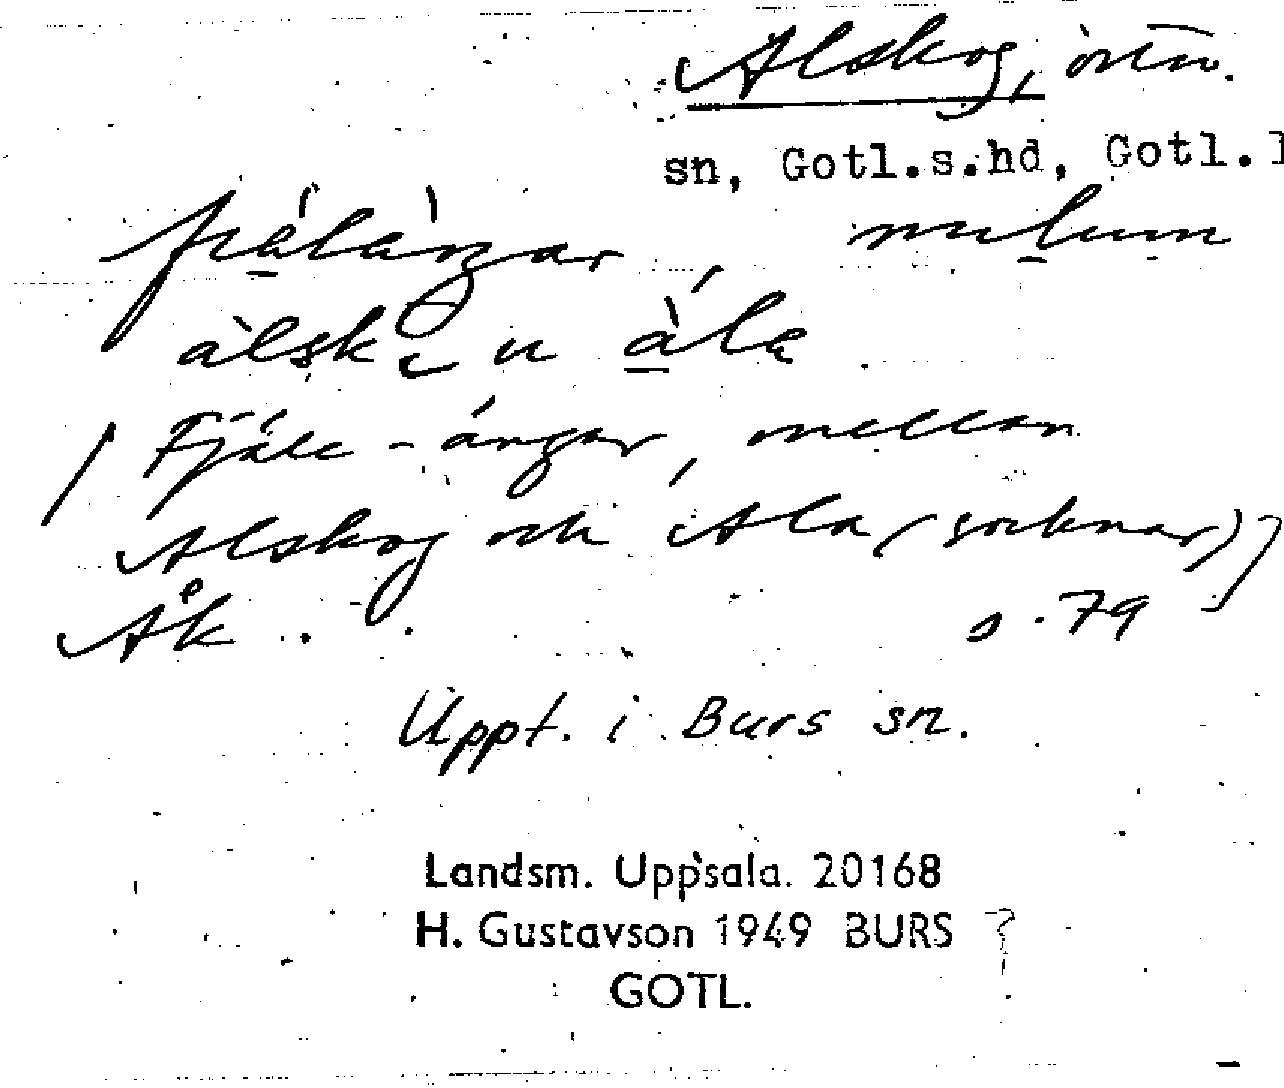 Alskog, ortn.
sn, Gotl.s.hd, Gotl.
mulum
alsk u ála
Fjäle-ängar, mellan
Alskog och Ala (socknar)]
Åk. . s. 79
Uppt. i Burs sn.
Landsm. Uppsala. 20168
H. Gustavson 1949 BURS ?
GOTL.